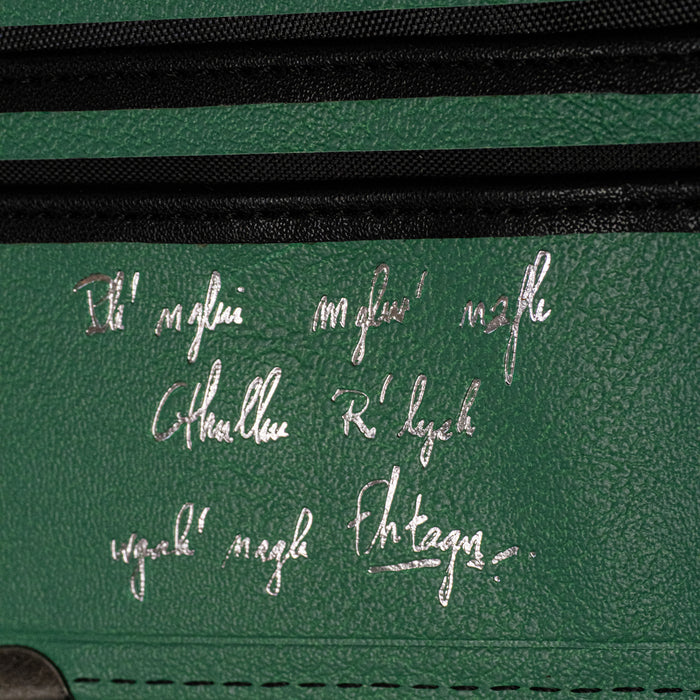 Ph' nglui mglw' nafh
Cthulhu R'lyeh
wgah' nagl Fhtagn...